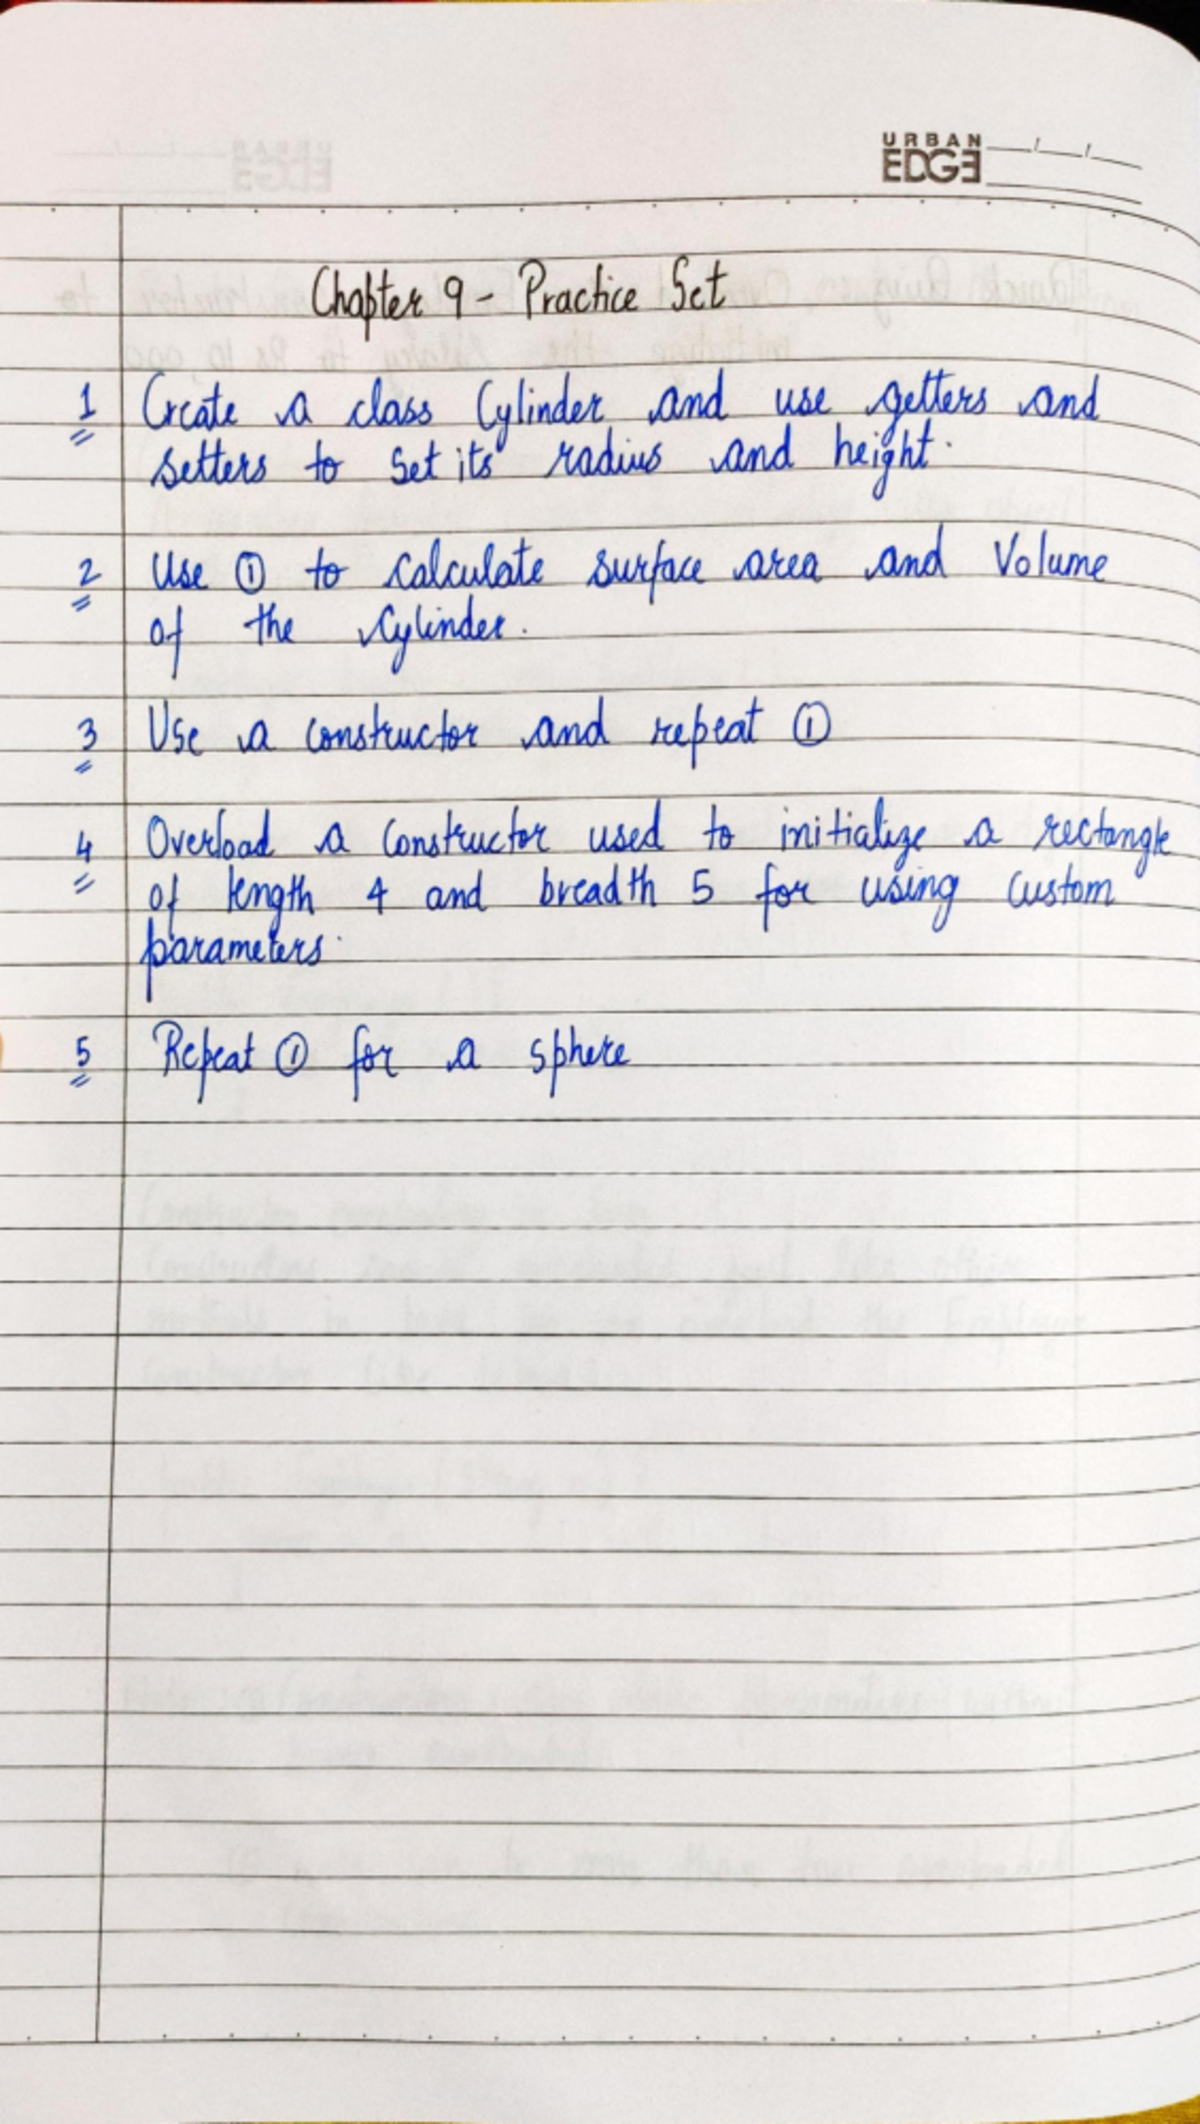 URBAN
EDGE
Chapter 9 - Practice Set
1 Create a class Cylinder and use getters and
setters to set its radius and height.
2 Use ① to calculate surface area and Volume
of the Cylinder.
3 Use a constructor and repeat ①
4 Overload a constructor used to initialize a rectangle
of length 4 and breadth 5 for using custom
parameters.
5 Repeat ① for a sphere